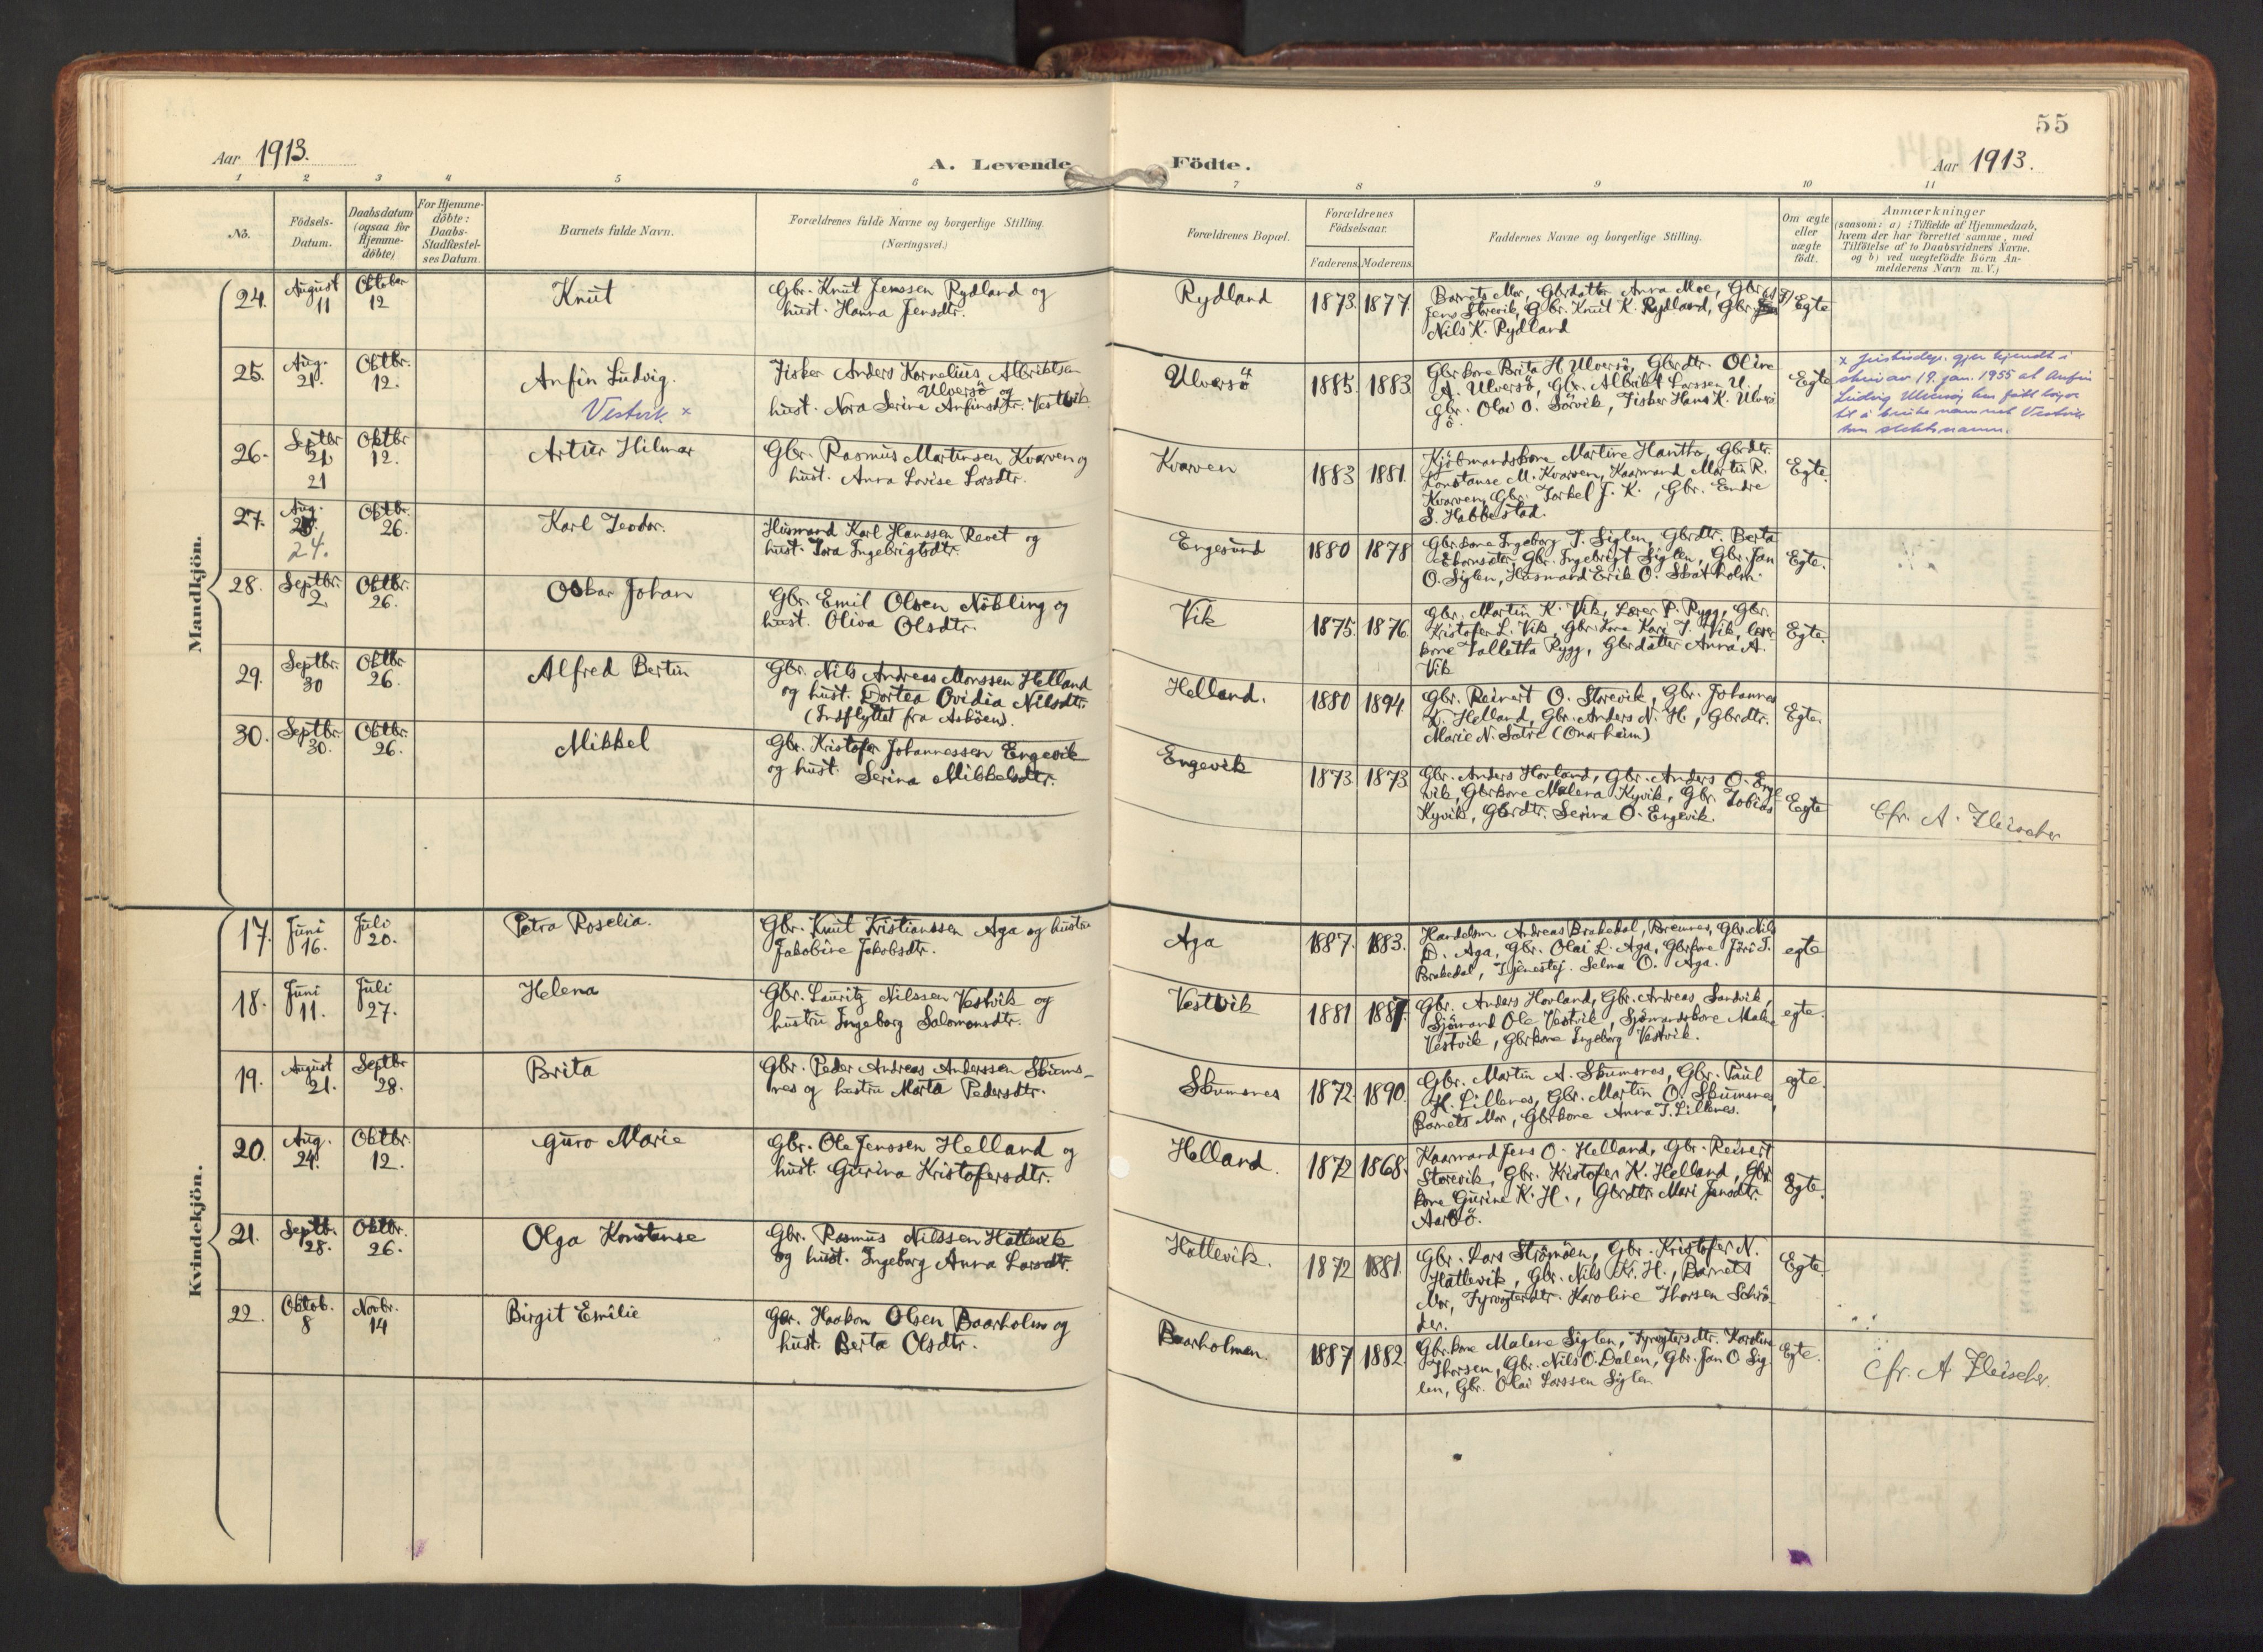 55
Aar 1913.
A. Levende Födte.
Aar 1913.
1 2 3 4 5 6 7 8 9 10 11
No.
Födsels-
Datum.
Daabsdatum
(ogsaa for
Hjemme-
döbte)
For Hjemme-
döbte:
Daabs-
Stadfæstel-
ses Datum.
Barnets fulde Navn.
Forældrenes fulde Navne og borgerlige Stilling.
(Næringsvei.)
Forældrenes Bopæl.
Forældrenes
Födselsaar.
Faderens. Moderens.
Faddernes Navne og borgerlige Stilling.
Om ægte
eller
uægte
födt.
Anmærkninger
(saasom: a) i Tilfælde af Hjemmedaab,
hvem der har forrettet samme, med
Tilföielse af to Daabsvidners Navne.
og b) ved uægtefödte Börn An-
melderens Navn m. V.)
Mandkjön.
24. August 11 Oktober 12 Knut
Gbr. Knut Jenssen Rydland og
hust. Hanna Jensdtr.
Rydland 1873. 1877.
Barnets Mor, Gbrdatter Anna Moe, Gbr.
Jens Storevik, Gbr. Knut K. Rydland, Gbr.
Nils K. Rydland
Egte
25. Aug. 21. Oktbr. 12. Anfin Ludvig.
Vestvik. x
Fisker Anders Kornelius Albriktsen
Ulversö og
hust. Nora Serine Anfinsdtr. Vestvik
Ulversö 1885. 1883
Gbrkone Brita H. Ulversö, Gbrdtr. Oline
A. Ulversö, Gbr. Albrikt Larssen U.,
Gbr. Olai O. Sörvik, Fisker Hans K. Ulvers
ö.
Egte
x Justisdep. gjer kjendt i
skriv av 19. jan. 1955 at Anfin
Ludvig Ulversöy har fått löyve
til å bruke namnet Vestvik
som slektsnamn.
26. Septbr 21 21 Oktbr 12. Artur Hilmar
Gbr. Rasmus Martinsen Kvarven og
hust. Anna Lovise Larsdtr.
Kvarven 1883 1881.
Kjöbmandskone Martine Hantho, Gbrdtr.
Konstanse M. Kvarven, Kaarmand Martin R.
Kvarven, Gbr. Torkel J. K., Gbr. Endre
S. Habbestad.
Egte.
27. Aug. 24. Oktbr. 26. Karl Teodor.
Husmand Karl Hanssen Revet og
hust. Tora Ingebrigtsdtr.
Engesund 1880 1878
Gbrkone Ingeborg T. Siglen, Gbrdtr. Berta
Ekornsæter, Gbr. Ingebrigt Siglen, Gbr. Jan
O. Siglen, Husmand Erik O. Skatholm.
Egte.
28. Septbr. 2 Oktbr. 26. Oskar Johan
Gbr. Emil Olsen Nökling og
hust. Oliva Olsdtr.
Vik 1875. 1876.
Gbr. Martin K. Vik, Lærer P. Rygg, Gbr.
Kristofer L. Vik, Gbrkone Kari J. Vik, lærer
kone Talletta Rygg, Gbrdatter Anna A.
Vik
Egte.
29. Septbr. 30 Oktbr 26. Alfred Bertin
Gbr. Nils Andreas Monssen Helland
og hust. Dortea Ovidia Nilsdtr.
(Indflyttet fra Asköen).
Helland. 1880 1894
Gbr. Reinert O. Storevik, Gbr. Johannes
K. Helland, Gbr. Anders N. H., Gbrdtr.
Marie N. Sætre (Onarheim)
Egte.
30. Septbr. 30. Oktbr. 26. Mikkel
Gbr. Kristofer Johannessen Engevik
og hust. Serina Mikkelsdtr.
Engevik 1873 1873
Gbr. Anders Hovland, Gbr. Anders O. Enge
vik, Gbrkone Malena Kyvik, Gbr. Tobias
Kyvik, Gbrdtr. Serina O. Engevik.
Egte
Cfr. A. Fleischer
Kvindekjön.
17. Juni 16. Juli 20. Petra Roselia.
Gbr. Knut Kristianssen Aga og hustru
Jakobine Jakobsdtr.
Aga 1887. 1883.
Handelsm. Andreas Brakedal, Bremnes, Gbr. Nils
D. Aga, Gbr. Olai L. Aga, Gbrkone Jöri T.
Brakedal, Tjenestej. Selma O. Aga.
egte
18. Juni 11. Juli 27. Helena
Gbr. Lauritz Nilssen Vestvik og
hustru Ingeborg Salomonsdtr.
Vestvik 1881 1887.
Gbr. Anders Hovland, Gbr. Andreas Sandvik,
Sjömand Ole Vestvik, Sjömandskone Malene
Vestvik, Gbrkone Ingeborg Vestvik.
egte.
19. August 21. Septbr 28. Brita
Gbr. Peder Andreas Anderssen Skums-
nes og hustru Marta Pedersdtr.
Skumsnes 1872. 1890.
Gbr. Martin A. Skumsnes, Gbr. Paul
H. Lillenes, Gbr. Martin O. Skumsnes,
Barnets Mor, Gbrkone Anna T. Lillenes.
egte.
20. Aug. 24. Oktbr. 12. Guro Marie
Gbr. Ole Jenssen Helland og
hust. Gurina Kristofersdtr.
Helland. 1872 1868.
Kaarmand Jens O. Helland, Gbr. Reinert
Storevik, Gbr. Kristofer K. Helland, Gbr
kone Gurine K. H., Gbrdtr. Mari Jensdtr.
Aarbö.
Egte.
21. Septbr. 28. Oktbr. 26. Olga Konstanse
Gbr. Rasmus Nilssen Hatlevik
og hust. Ingeborg Anna Larsdtr.
Hatlevik. 1872 1881.
Gbr. Lars Strömöen, Gbr. Kristofer N.
Hatlevik, Gbr. Nils Kr. H., Barnets
Mor, Fyrvogterdtr. Karoline Thorsen Schrö-
der.
Egte.
22. Oktob. 8 Novbr. 14 Birgit Emilie
Gbr. Haakon Olsen Baarholm og
hust. Berta Olsdtr.
Baarholmen. 1887 1882.
Gbrkone Malene Siglen, Fyrvogtersdtr. Karoline
Thorsen, Gbr. Nils O. Dalen, Gbr. Jan O. Sig
len, Gbr. Olai Larssen Siglen
Egte.
Cfr. A Fleischer.